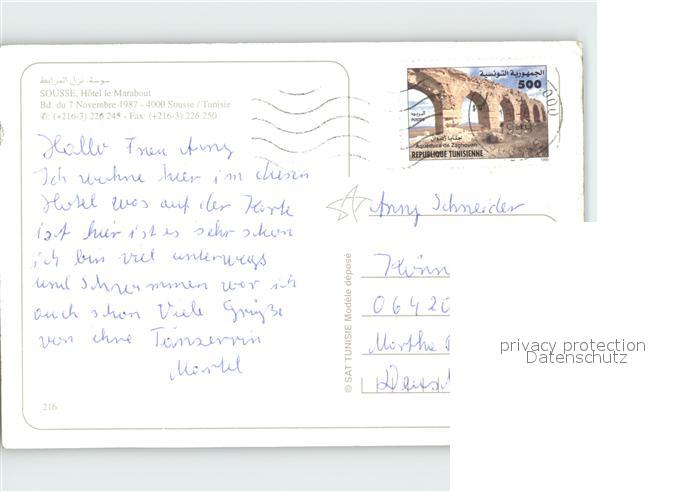 سوسة، نزل المرابط
SOUSSE, Hôtel le Marabout
Bd. du 7 Novembre 1987 - 4000 Sousse / Tunisie
✆: (+216-3) 226 245 - Fax: (+216-3) 226 250
Hallo Frau Anny
Ich wohne hier im diesen
Hotel was auf der Karte
ist hier ist es sehr schön
ich bin viel unterwegs
und Schwimmen war ich
auch schon Viele Grüße
von ihre Tänzerrin
216
الجمهورية التونسية
500
البريد
POSTES
حنايا زغوان
Aqueducs de Zaghouan
REPUBLIQUE TUNISIENNE
Anny Schneider
06420
Martha
© SAT TUNISIE Modèle déposé
privacy protection
Datenschutz